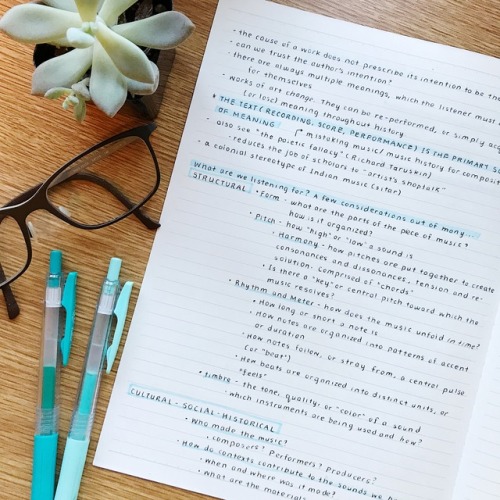 - the cause of a work does not prescribe its intention to be the
- can we trust the author's intention?
- there are always multiple meanings, which the listener must
for themselves
- works of art change. They can be re-performed, or simply acq
(or lose) meaning throughout history.
* THE TEXT (RECORDING, SCORE, PERFORMANCE) IS THE PRIMARY SO
OF MEANING mistaking music/music history for compose
- also see "the poietic fallacy" (Richard Taruskin)
- reduces the job of scholars to "artist's shoptalk"
- a colonial stereotype of Indian music (sitar)
What are we listening for? A few considerations out of many...
STRUCTURAL • Form - what are the parts of the piece of music?
how is it organized?
• Pitch - how "high" or "low" a sound is
• Harmony - how pitches are put together to create
consonances and dissonances, tension and re-
solution. comprised of "chords"
• Is there a "key" or central pitch toward which the
music resolves?
• Rhythm and Meter - how does the music unfold in time?
• How long or short a note is
• How notes are organized into patterns of accent
or duration
• How notes follow, or stray from, a central pulse
(or "beat")
• How beats are organized into distinct units, or
"feels"
• timbre - the tone, quality, or "color" of a sound
• which instruments are being used and how?
CULTURAL - SOCIAL - HISTORICAL
• Who made the music?
• composers? Performers? Producers?
• How do contexts contribute to the sounds we h
• when and where was it made?
• what are the materials